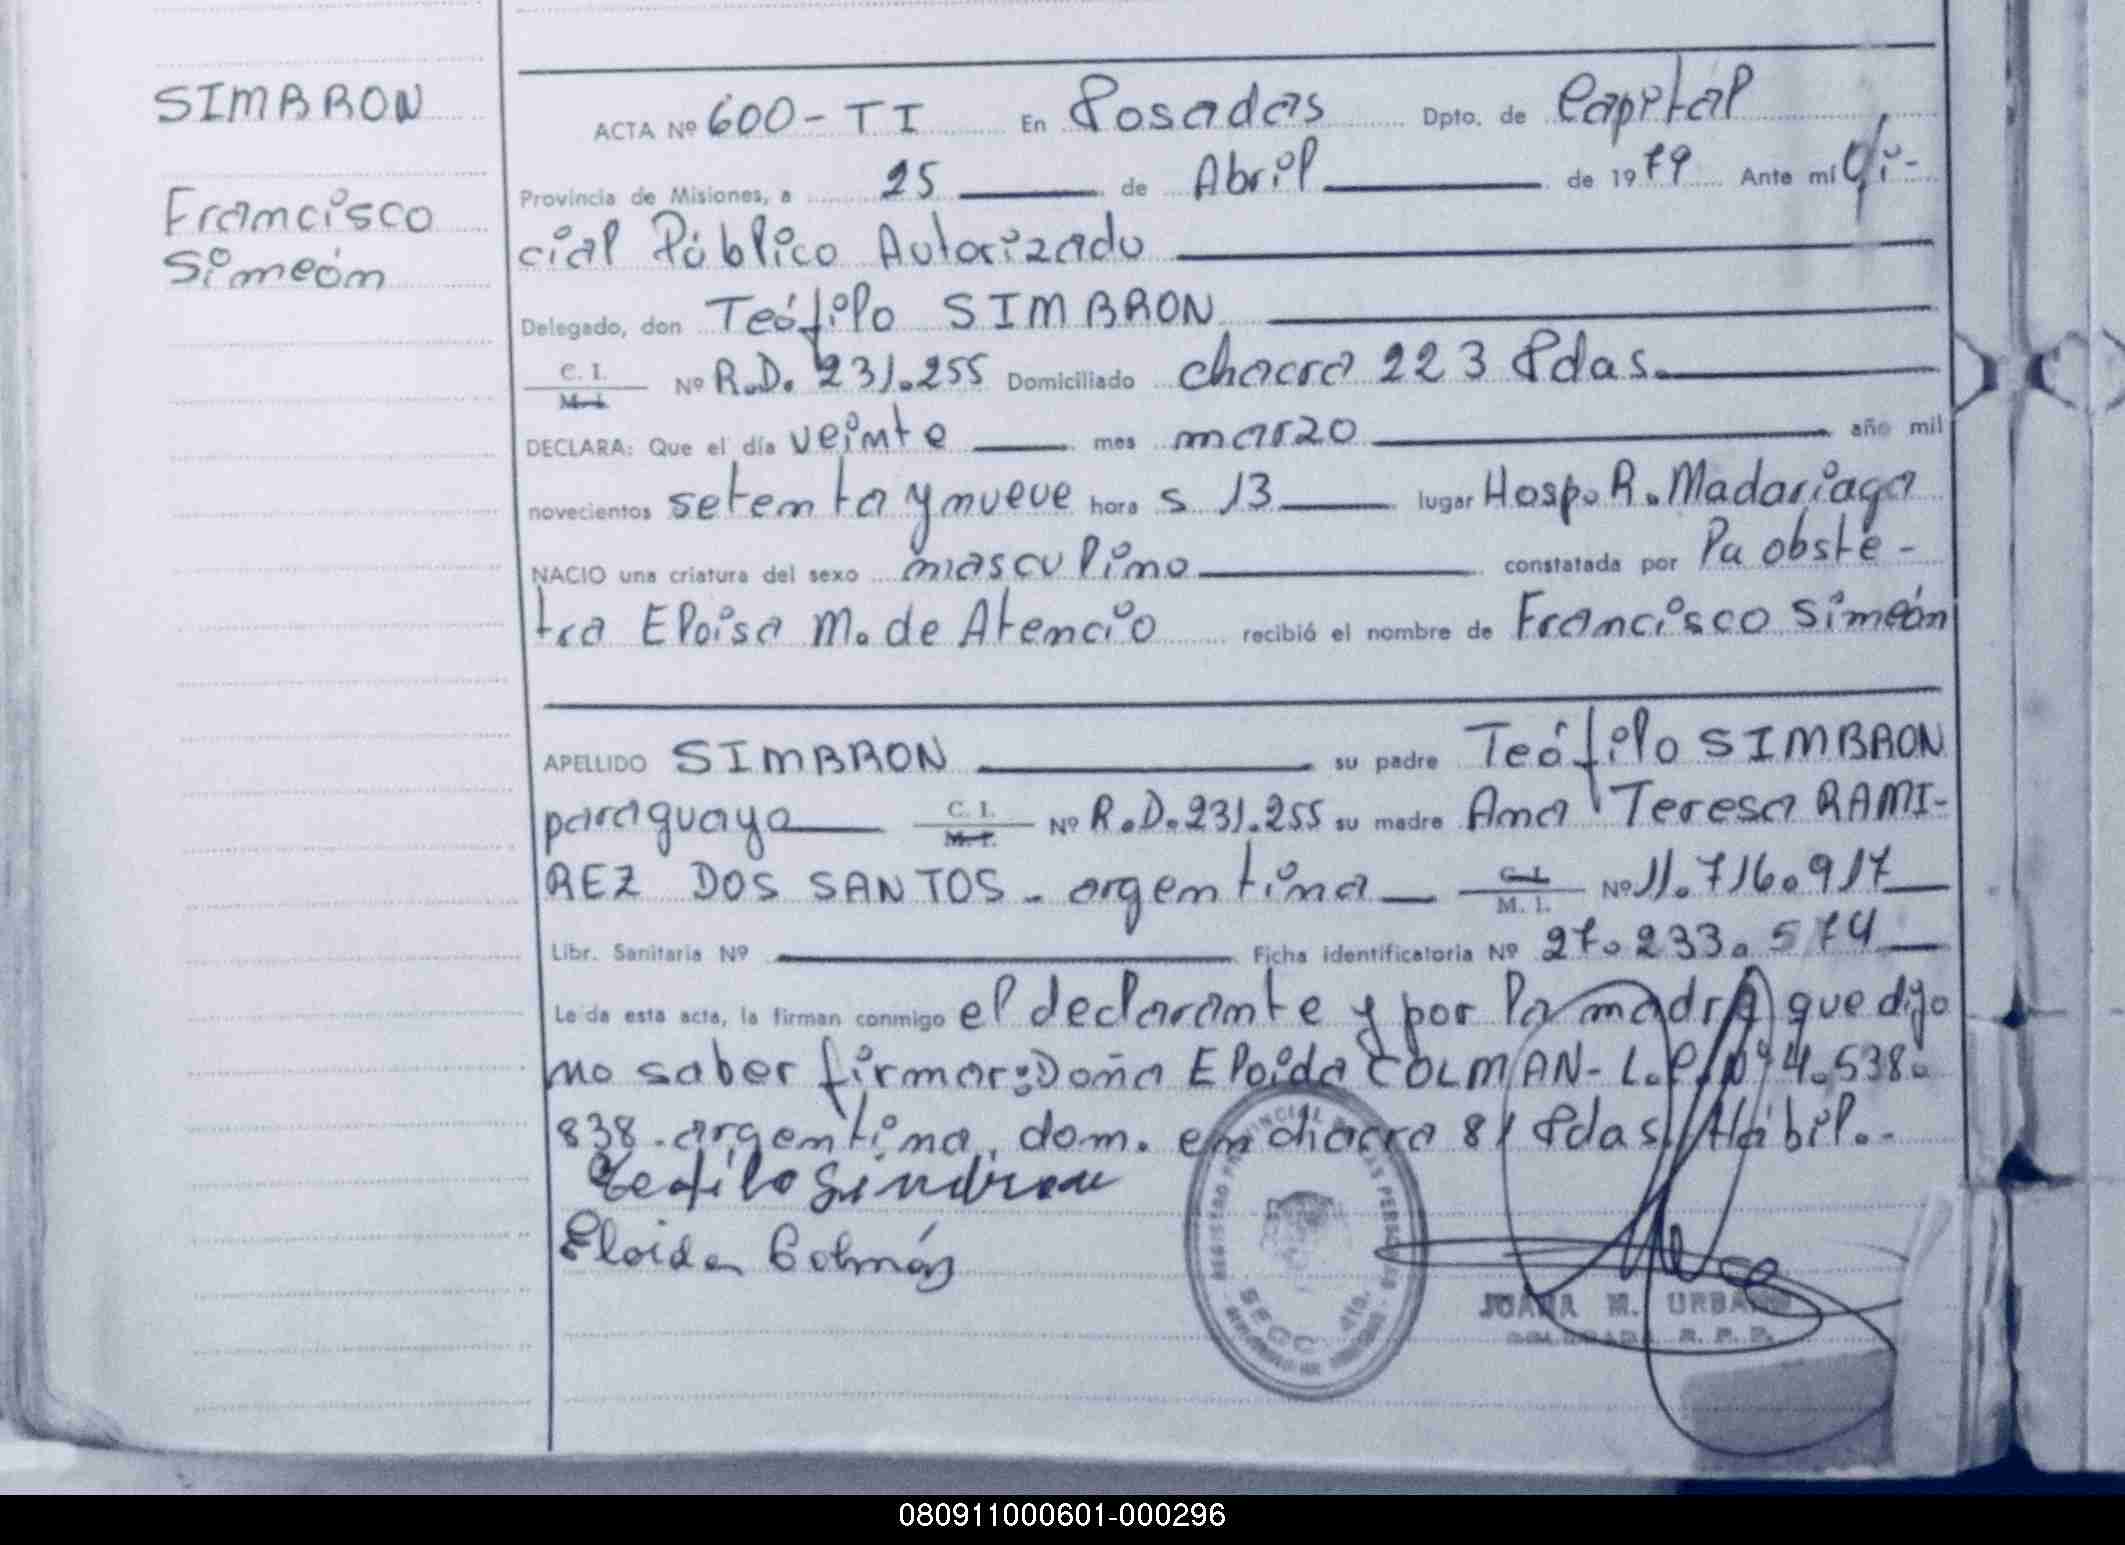 SIMBRON
Francisco
Simeón
ACTA Nº 600-TI En Posadas Dpto. de Capital
Provincia de Misiones, a 25 de Abril de 1979 Ante mí Ofi-
cial Público Autorizado
Delegado, don Teófilo SIMBRON
C. I.
M. I. Nº R.D. 231.255 Domiciliado chacra 223 Pdas.
DECLARA: Que el día veinte mes marzo año mil
novecientos setenta y nueve hora s 13 lugar Hosp. R. Madariaga
NACIO una criatura del sexo masculino constatada por la obste-
tra Eloisa M. de Atencio recibió el nombre de Francisco Simeón
APELLIDO SIMBRON su padre Teófilo SIMBRON
paraguayo C. I.
M. I. Nº R.D. 231.255 su madre Ana Teresa RAMI-
REZ DOS SANTOS - argentina C. I.
M. I. Nº 11.716.917
Libr. Sanitaria Nº Ficha identificatoria Nº 27.233.574
Leída esta acta, la firman conmigo el declarante y por la madre que dijo
no saber firmar: Doña Eloida COLMAN - L.C. Nº 4.538.
838. argentina, dom. en chacra 81 Pdas. Hábil.-
Teofilo Sindron
Eloida Colmán
REGISTRO PROVINCIAL DE LAS PERSONAS
SECC. 4ta.
JUANA M. URBANO
080911000601-000296